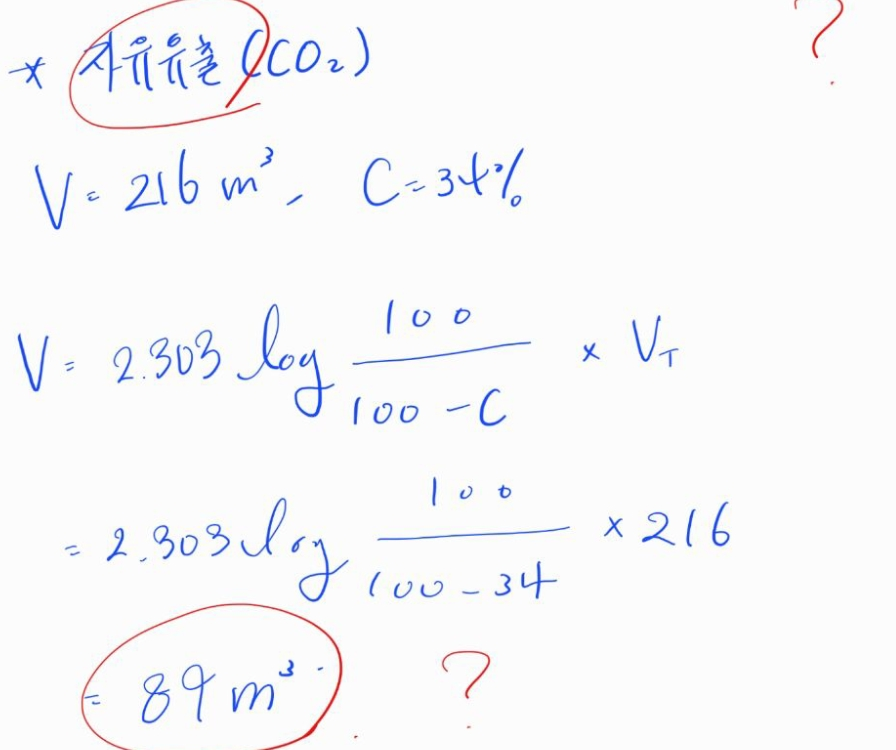 * 자유유출 (CO₂) ?
V = 216 m³, C = 34%
V = 2.303 log 100 / (100 - C) × V_T
= 2.303 log 100 / (100 - 34) × 216
= 89 m³. ?